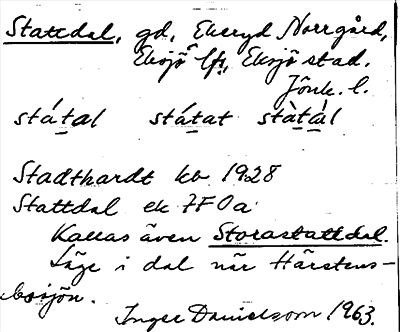 Stattdal, gd, Ekeryd Norrgård,
Eksjö lfs, Eksjö stad.
Jönk. l.
státal státat stàtàl
Stadthardt kb 1928
Stattdal ek 7F0a
Kallas även Storastattdal.
Läge i dal när Härstens-
bosjön.
Inger Danielsson 1963